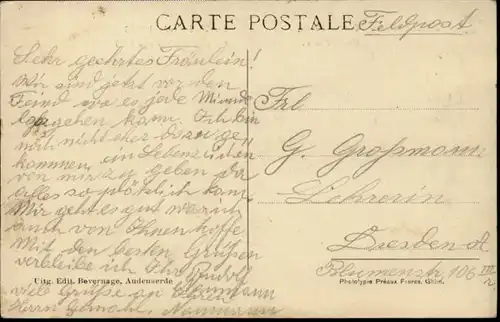 CARTE POSTALE
Feldpost
Sehr geehrtes Fräulein!
Wir sind jetzt vor den
Feind wo es jede Minute
losgehen kann. Ich bin
noch nicht eher dazu ge
kommen, ein Lebenszeichen
von mir zu geben da
alles so plötzlich kam.
Mir geht es gut was ich
auch von Ihnen hoffe.
Mit den besten Grüßen
verbleibe ich Ihr Rudolf
viele Grüße an Naumann
Herrn Naumann
Frl
G. Großmann
Lehrerin
Dresden A.
Blumenstr. 106 III
r.
Uitg. Edit. Bevernage, Audenaerde
Phototypie Préaux Frères, Ghlin.